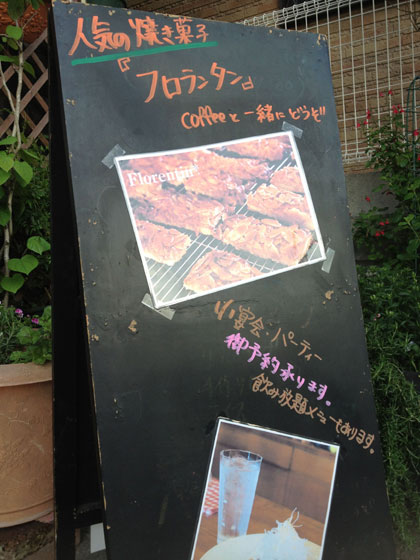 人気の焼き菓子
『フロランタン』
coffeeと一緒にどうぞ!!
Florentin
小宴会・パーティー
御予約承ります。
飲み放題メニューもあります。